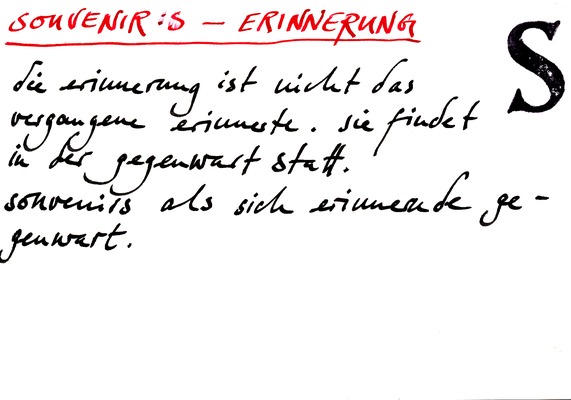 SOUVENIR:S – ERINNERUNG
S
die erinnerung ist nicht das
vergangene erinnerte. sie findet
in der gegenwart statt.
souvenirs als sich erinnernde ge-
genwart.